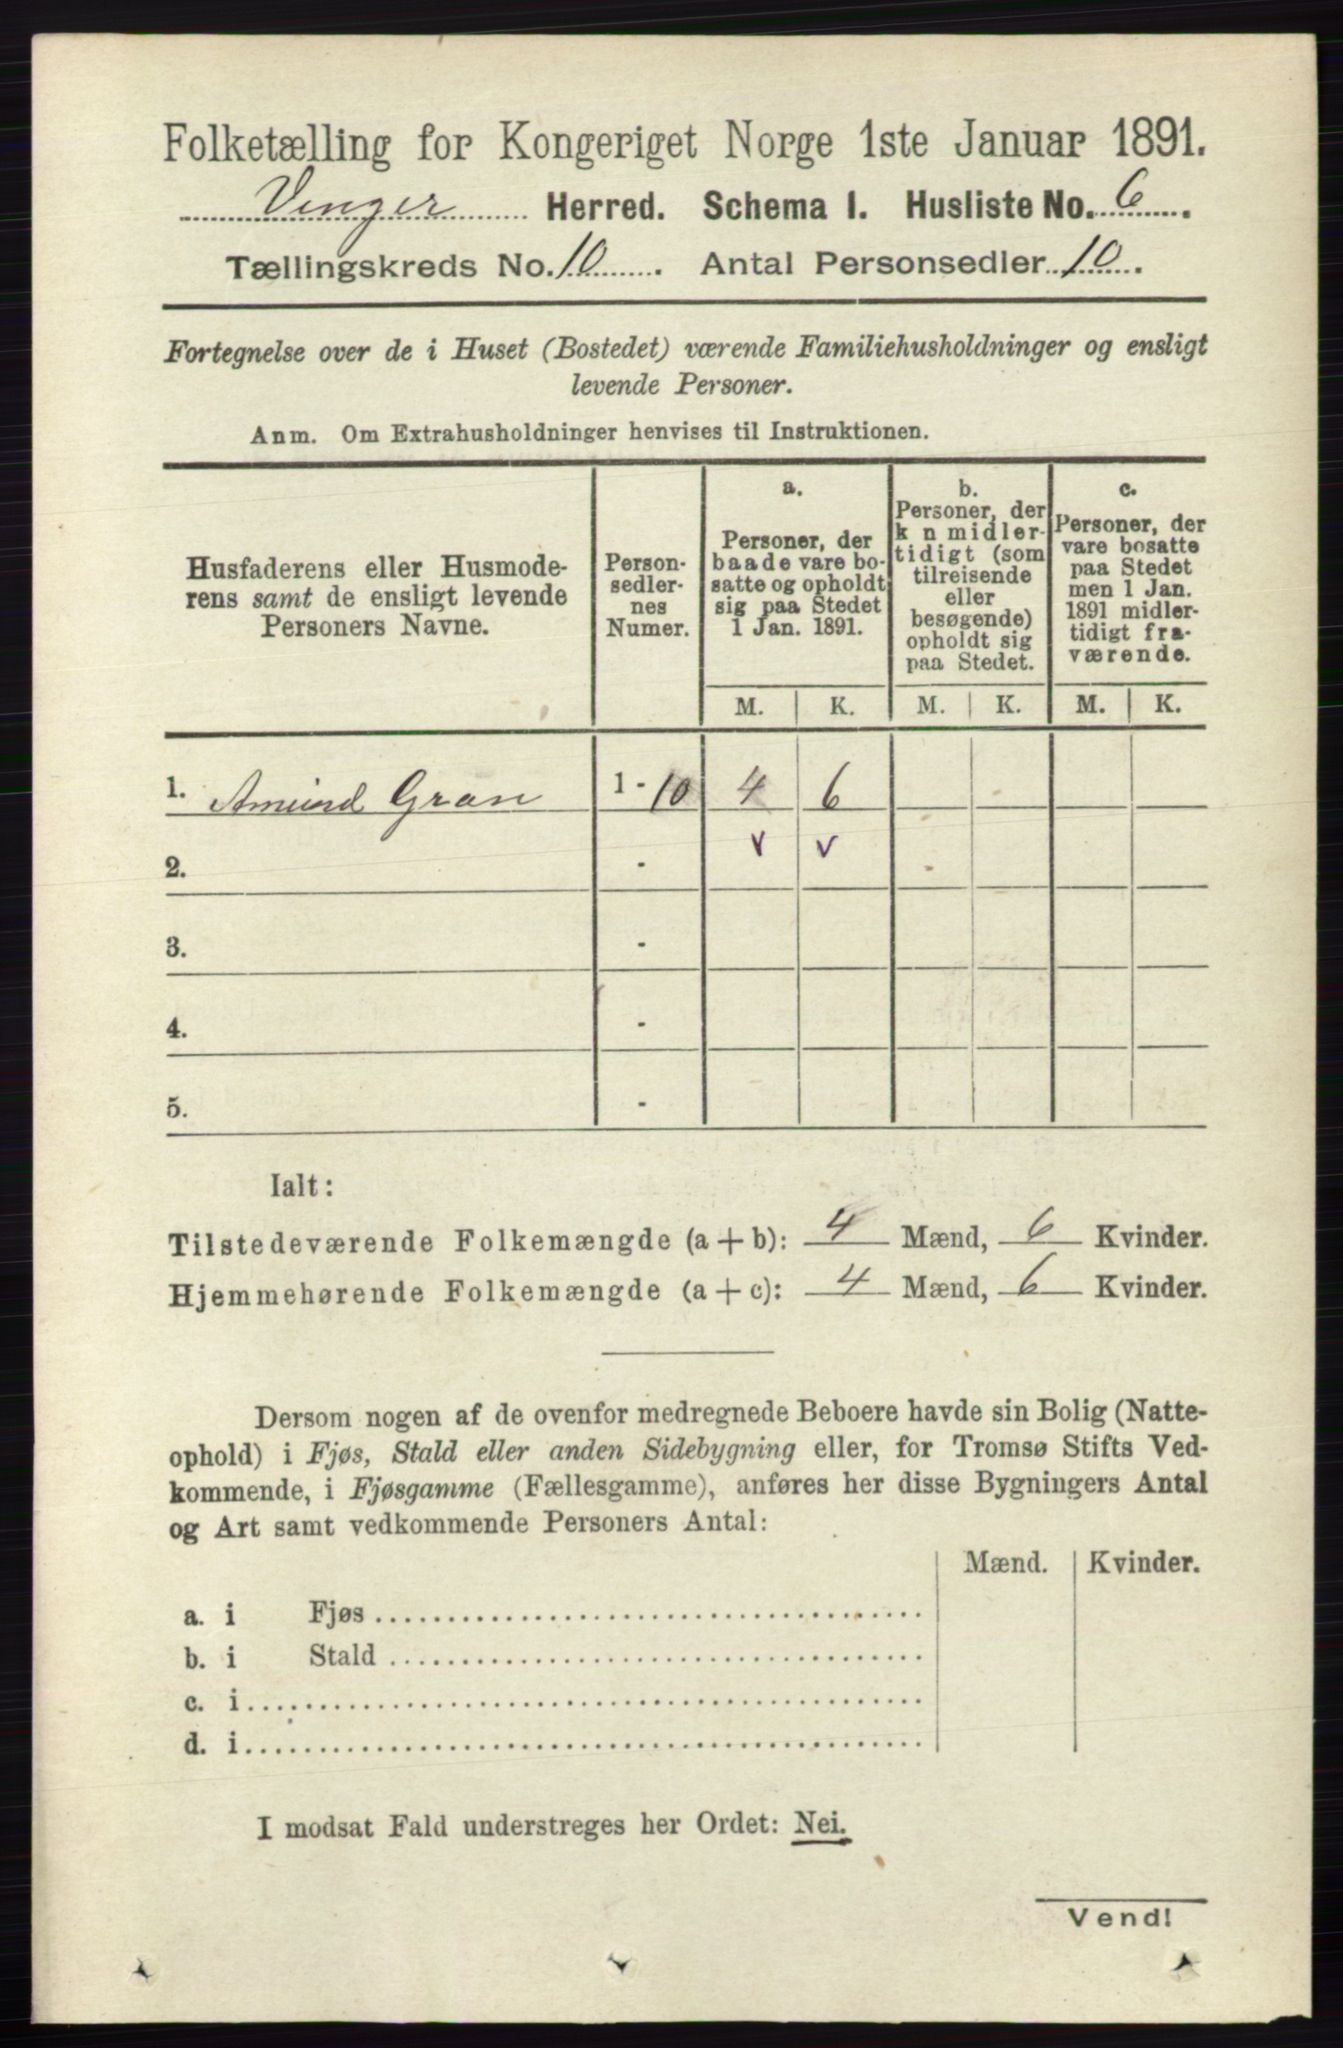 Folketælling for Kongeriget Norge 1ste Januar 1891.
Vinger Herred. Schema I. Husliste No. 6.
Tællingskreds No. 10. Antal Personsedler 10.
Fortegnelse over de i Huset (Bostedet) værende Familiehusholdninger og ensligt
levende Personer.
Anm. Om Extrahusholdninger henvises til Instruktionen.
Husfaderens eller Husmode-
rens samt de ensligt levende
Personers Navne.
Person-
sedler-
nes
Numer.
a.
Personer, der
baade vare bo-
satte og opholdt
sig paa Stedet
1 Jan. 1891.
b.
Personer, der
k n midler-
tidigt (som
tilreisende
eller
besøgende)
opholdt sig
paa Stedet.
c.
Personer, der
vare bosatte
paa Stedet
men 1 Jan.
1891 midler-
tidigt fra-
værende.
M. K. M. K. M. K.
1. Amund Gran 1 - 10 4 6
2. - v v
3. -
4. -
5. -
Ialt:
Tilstedeværende Folkemængde (a + b): 4 Mænd, 6 Kvinder.
Hjemmehørende Folkemængde (a + c): 4 Mænd, 6 Kvinder.
Dersom nogen af de ovenfor medregnede Beboere havde sin Bolig (Natte-
ophold) i Fjøs, Stald eller anden Sidebygning eller, for Tromsø Stifts Ved-
kommende, i Fjøsgamme (Fællesgamme), anføres her disse Bygningers Antal
og Art samt vedkommende Personers Antal:
Mænd. Kvinder.
a. i Fjøs
b. i Stald
c. i
d. i
I modsat Fald understreges her Ordet: Nei.
Vend!